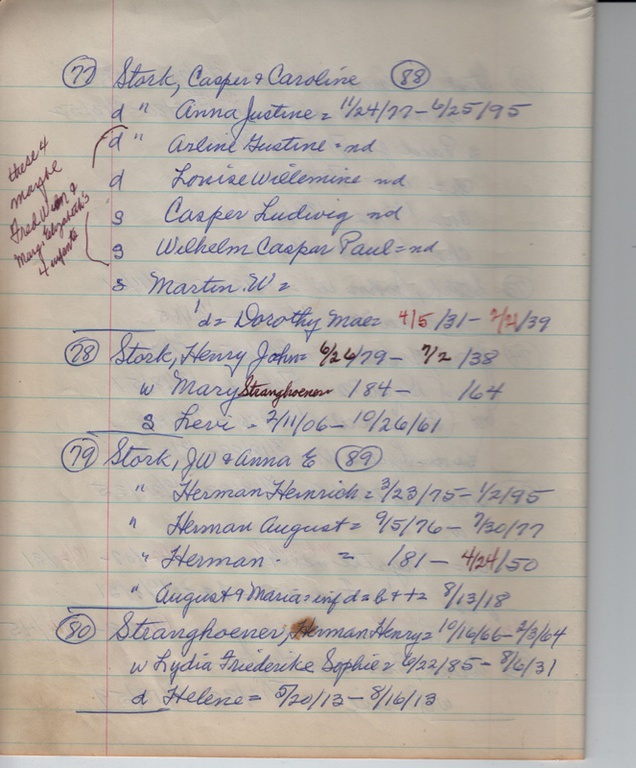 77 Stork, Casper & Caroline 88
d " Anna Justine = 11/24/77 - 6/25/95
d " Arline Justine = nd
d Louise Willemine nd
s Casper Ludwig nd
s Wilhelm Caspar Paul = nd
these 4
maybe
Fred Wm &
Mary Elizabeth's
4 infants
s Martin W =
d = Dorothy Mae = 4/5/31 - 2/2/39
78 Stork, Henry John = 6/26/79 - 7/2/38
w Mary Stranghoener 184 - 164
s Levi - 2/11/06 - 10/26/61
79 Stork, JW & Anna E 89
" Herman Heinrich = 3/23/75 - 1/2/95
" Herman August = 9/5/76 - 7/30/77
" Herman = 181 - 4/24/50
" August & Maria = inf d = b + + = 8/13/18
80 Stranghoener, Herman Henry = 10/16/66 - 2/3/64
w Lydia Friederike Sophie = 6/22/85 - 8/6/31
d Helene = 5/20/13 - 8/16/13